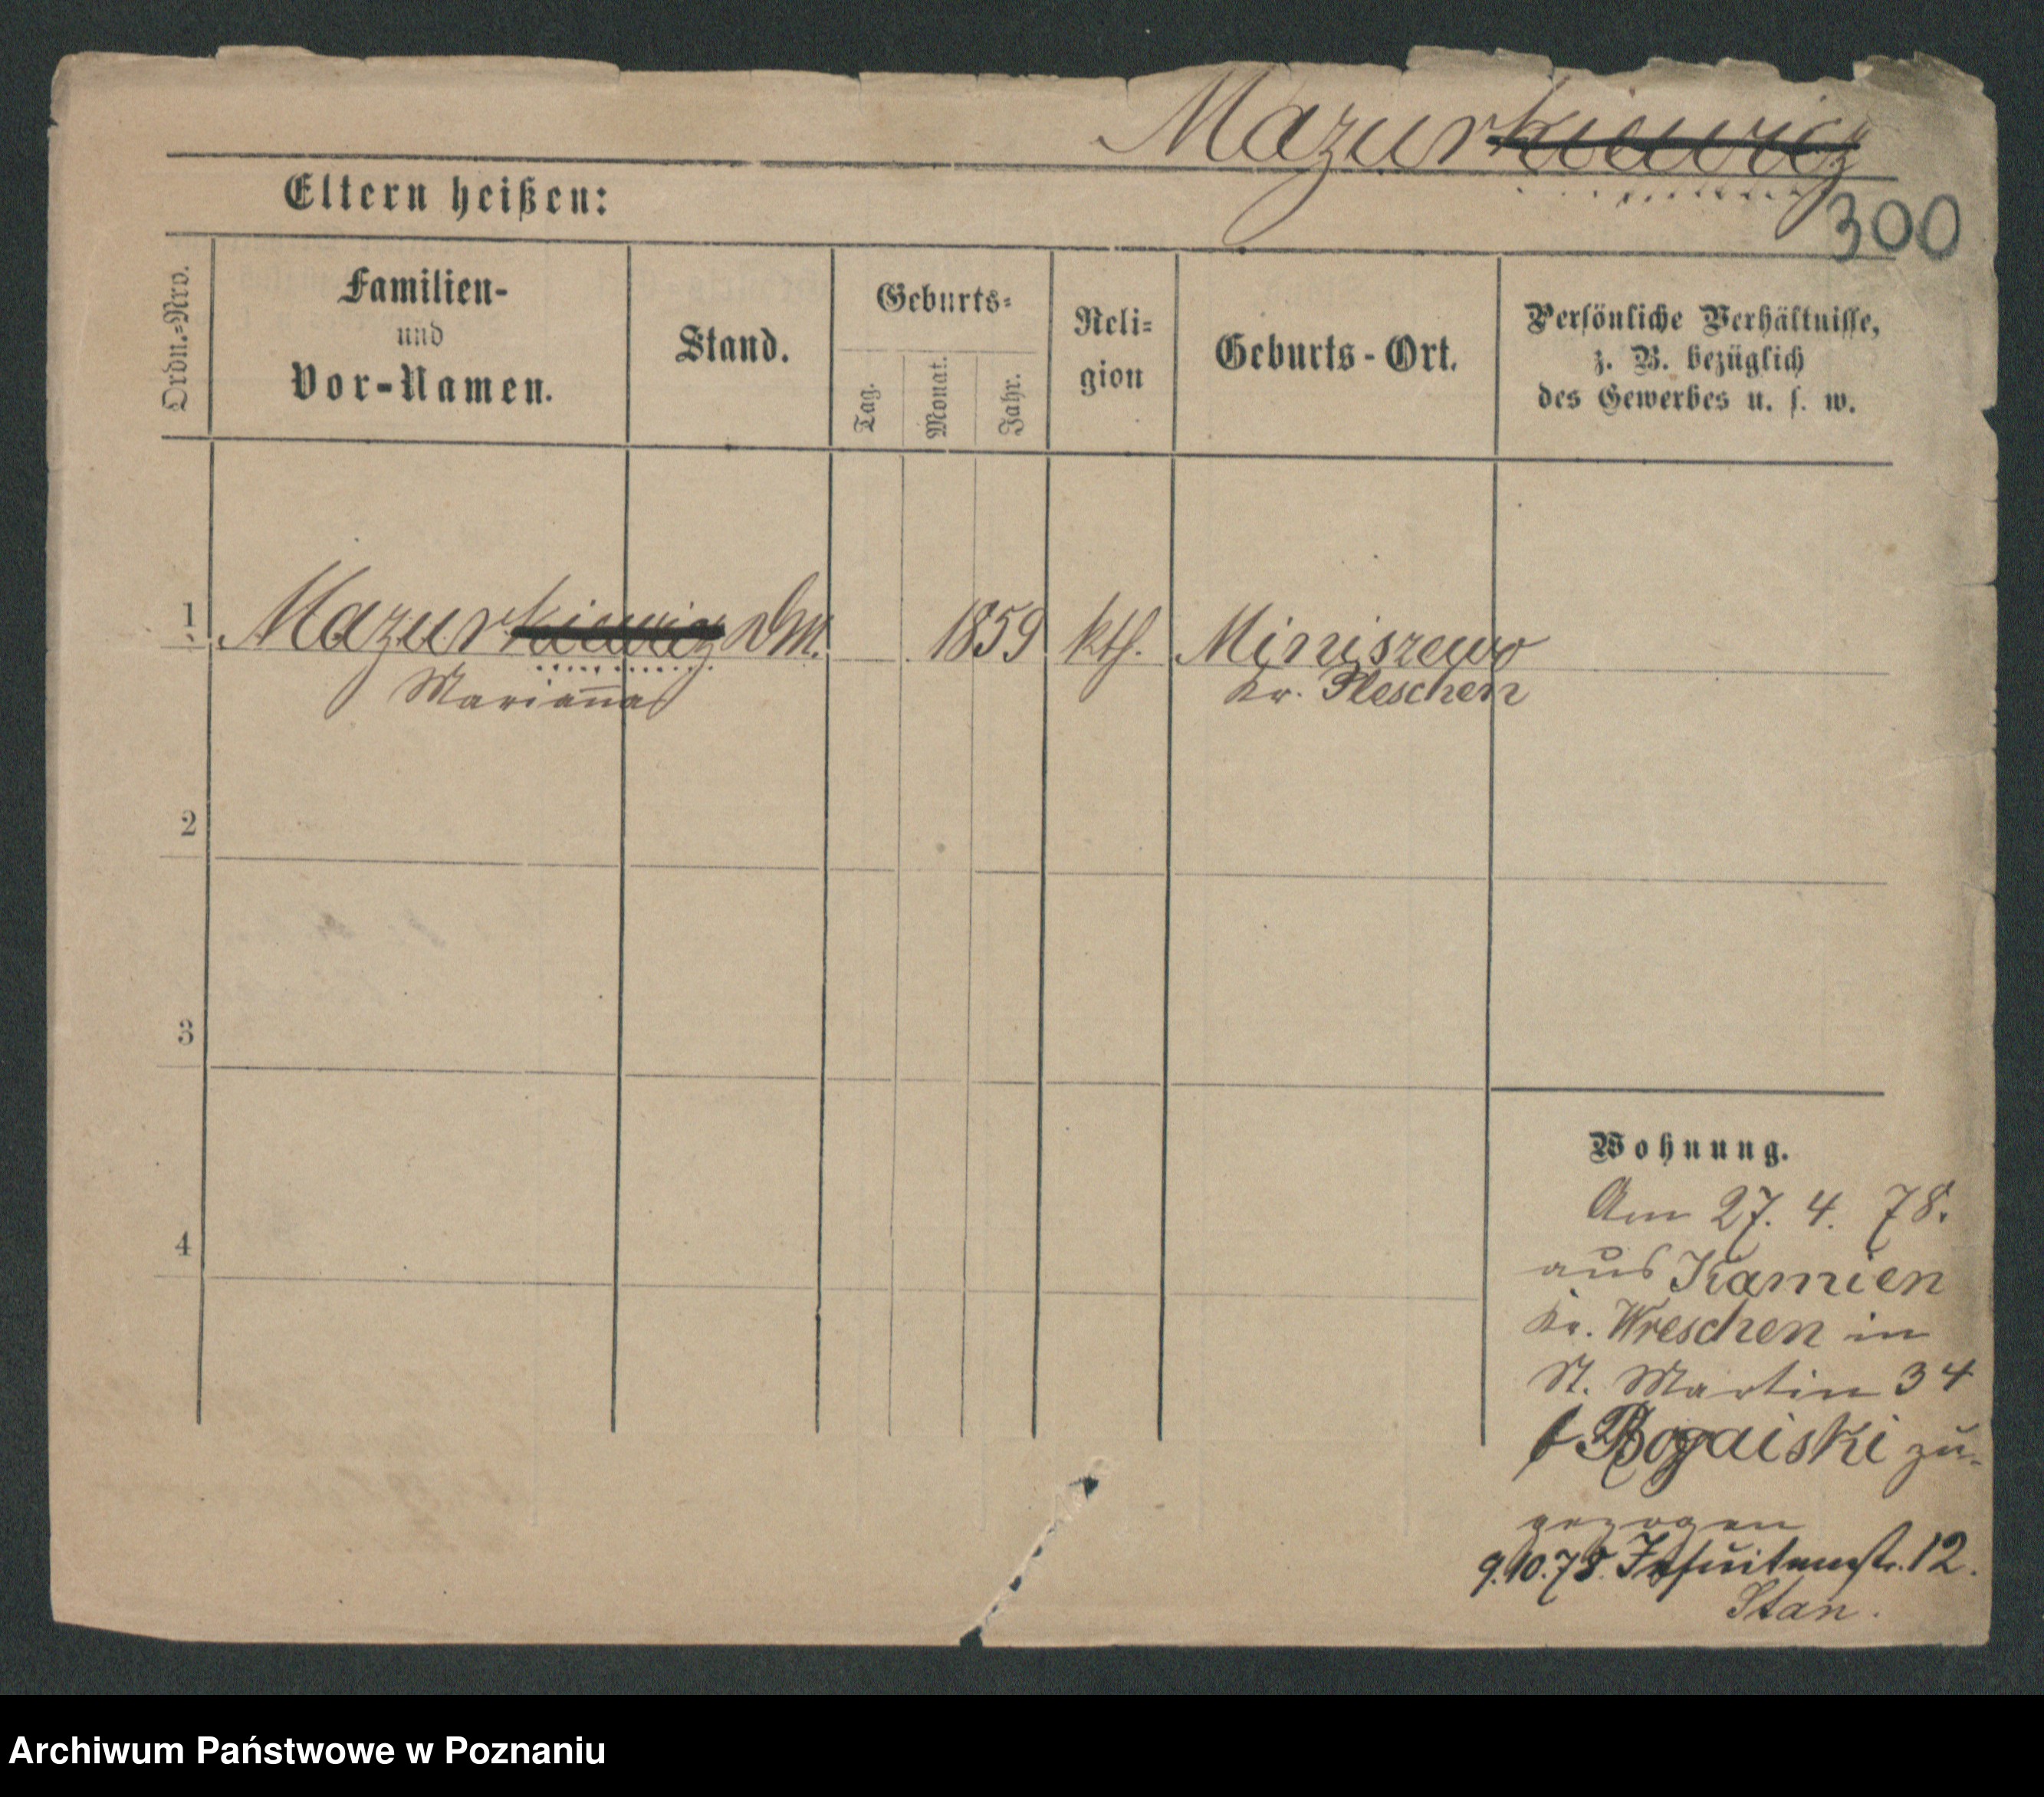 Mazurkiewicz
Eltern heißen:
300
Ordn.=Nro.
Familien-
und
Vor-Namen.
Stand.
Geburts=
Tag.
Monat.
Jahr.
Reli=
gion
Geburts-Ort.
Persönliche Verhältnisse,
z. B. bezüglich
des Gewerbes u. s. w.
1 Mazurkiewicz Dm. 1859 kth. Miniszewo
Marianna Kr. Pleschen
2
3
4
Wohnung.
Am 27. 4. 78.
aus Kamien
Kr. Wreschen in
St. Martin 34
b Bogaiski zu-
gezogen
9.10.78. Jesuitenstr. 12.
Stan.
Archiwum Państwowe w Poznaniu